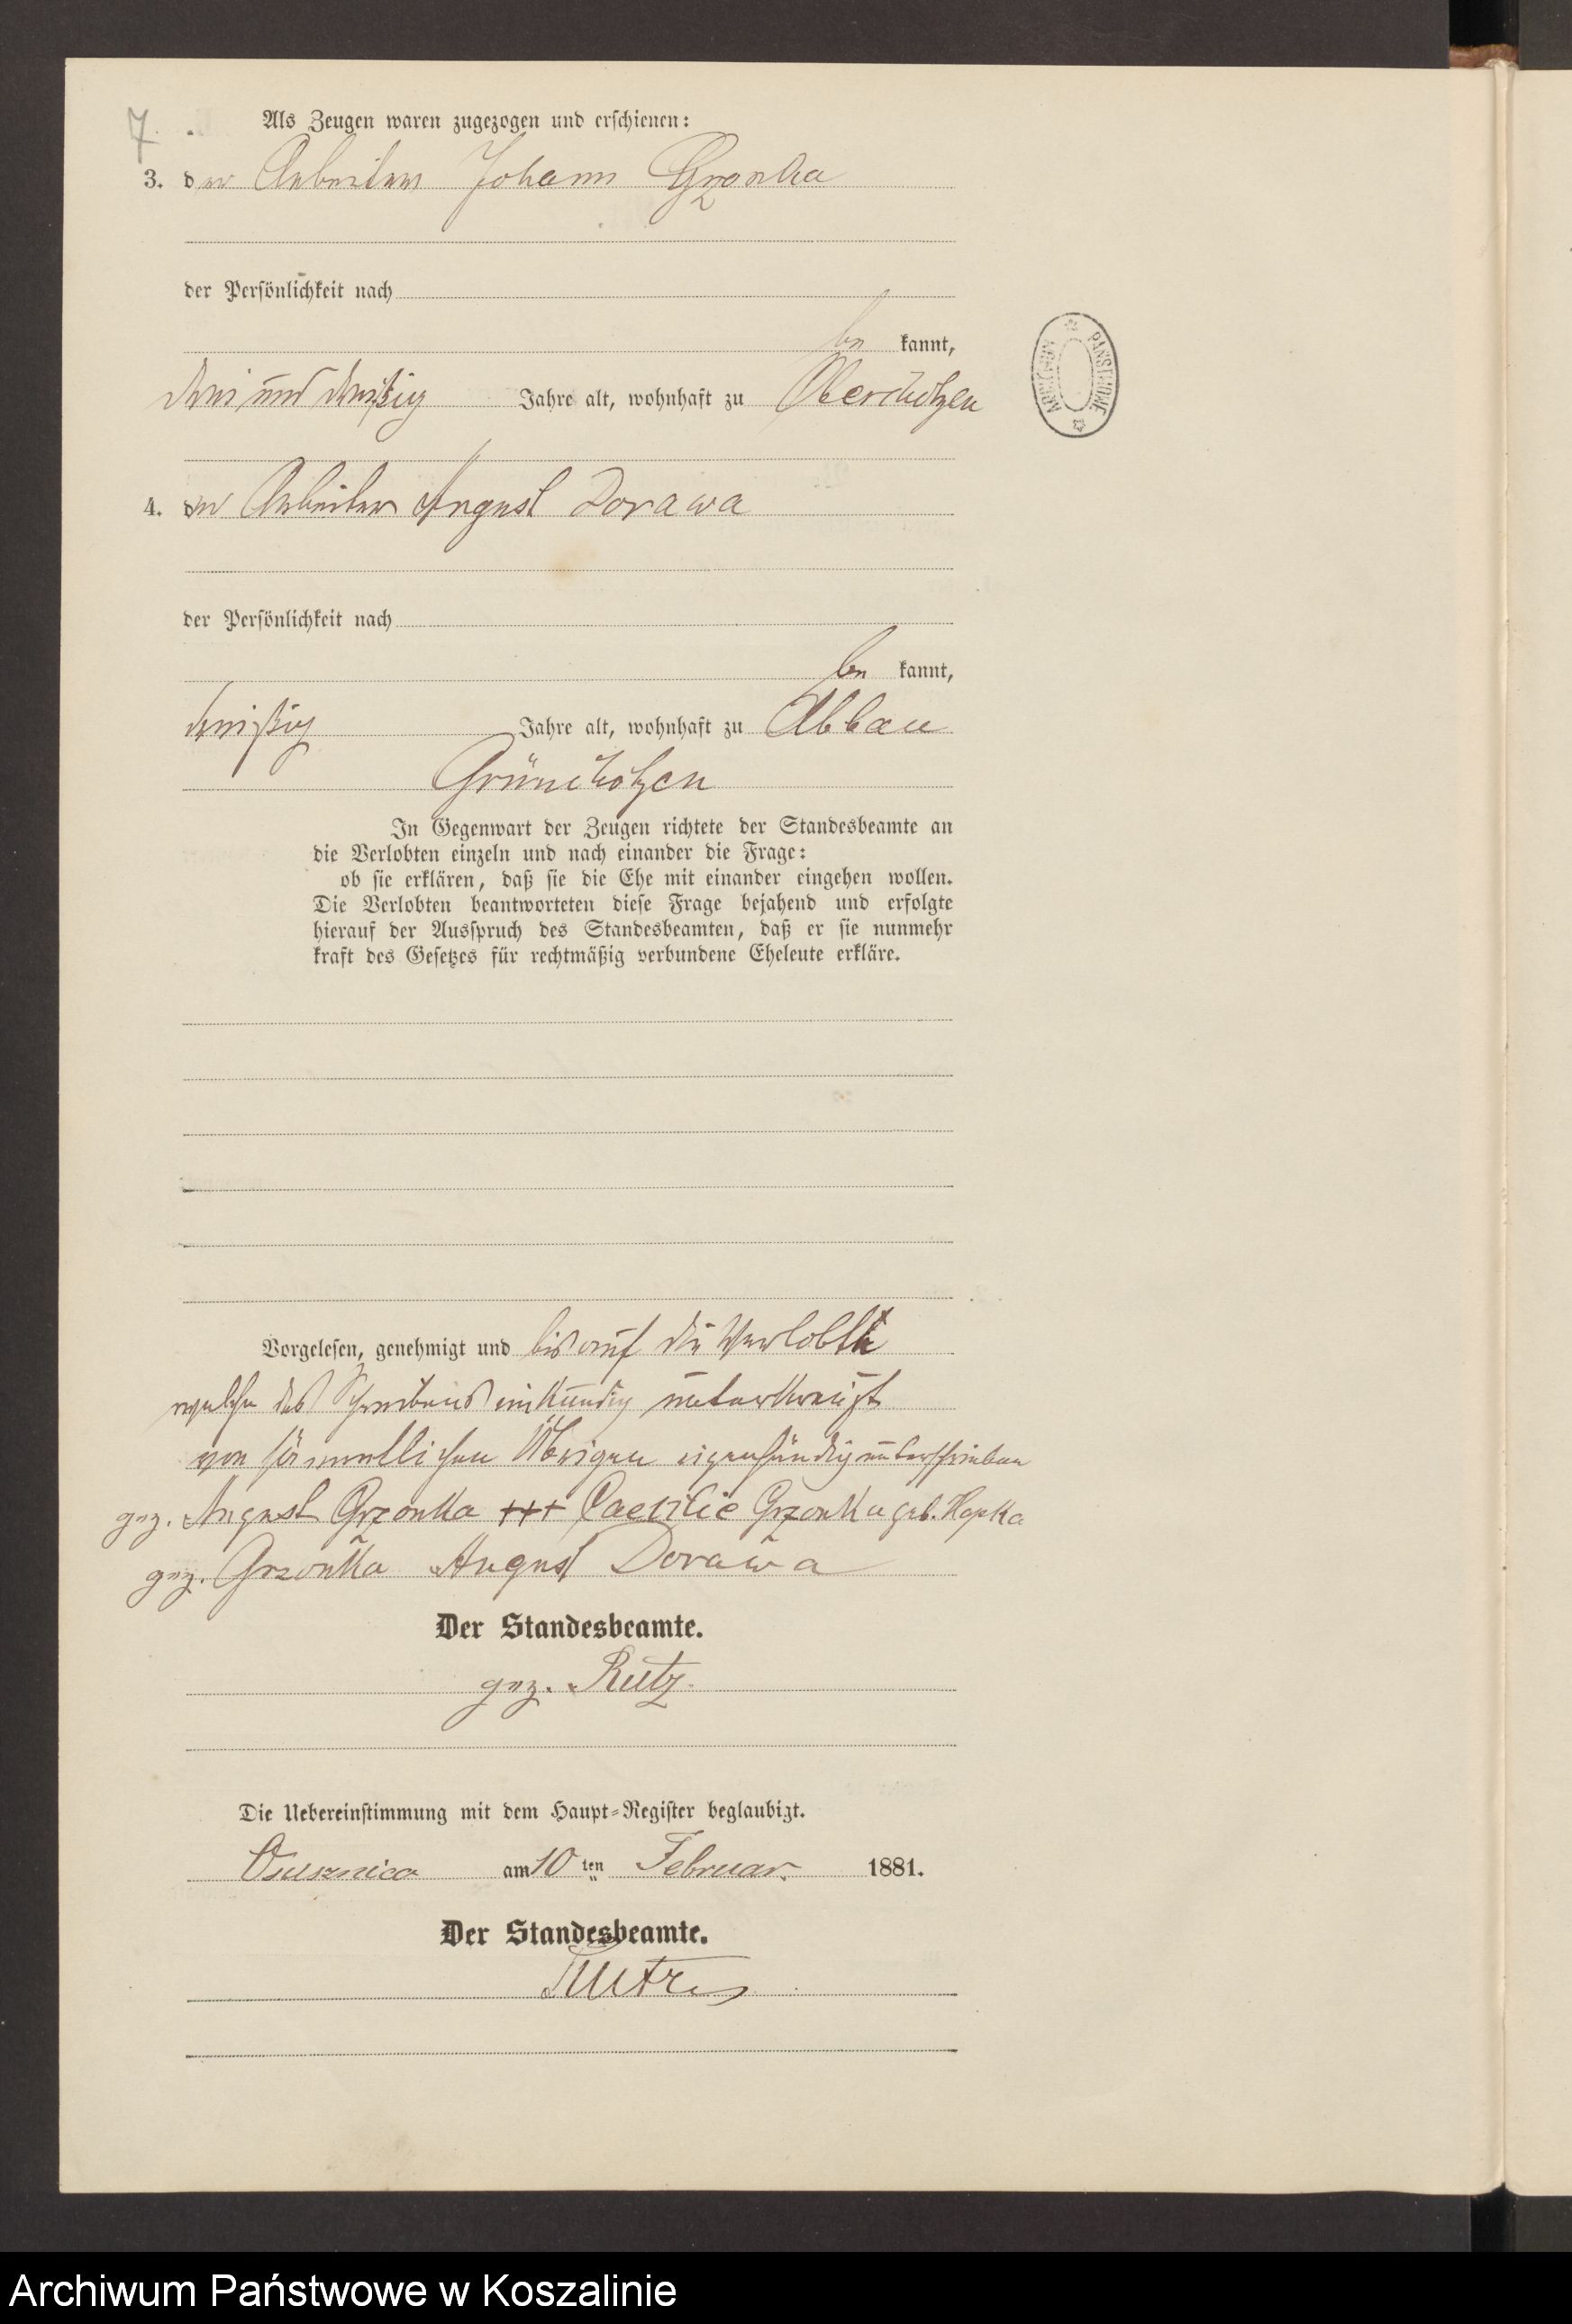 7.
Als Zeugen waren zugezogen und erschienen:
3. der Arbeiter Johann Grzonka
der Persönlichkeit nach
be kannt,
drei und dreißig Jahre alt, wohnhaft zu Oberschotzen
4. der Arbeiter August Dorawa
der Persönlichkeit nach
be kannt,
dreißig Jahre alt, wohnhaft zu Abbau
Grünchotzen
In Gegenwart der Zeugen richtete der Standesbeamte an
die Verlobten einzeln und nach einander die Frage:
ob sie erklären, daß sie die Ehe mit einander eingehen wollen.
Die Verlobten beantworteten diese Frage bejahend und erfolgte
hierauf der Ausspruch des Standesbeamten, daß er sie nunmehr
kraft des Gesetzes für rechtmäßig verbundene Eheleute erkläre.
Vorgelesen, genehmigt und bis auf die Verlobte
welche des Schreibens unkundig unterkreuzt
von sämmtlichen Übrigen eigenhändig unterschrieben
gez. August Grzonka +++ Caecilie Grzonka geb. Hapka
gez. Grzonka August Dorawa
Der Standesbeamte.
gez. Rutz.
Die Uebereinstimmung mit dem Haupt-Register beglaubigt.
Ossusznica am 10 ten Februar 1881.
Der Standesbeamte.
Rutz
ARCHIWUM PAŃSTWOWE
Archiwum Państwowe w Koszalinie